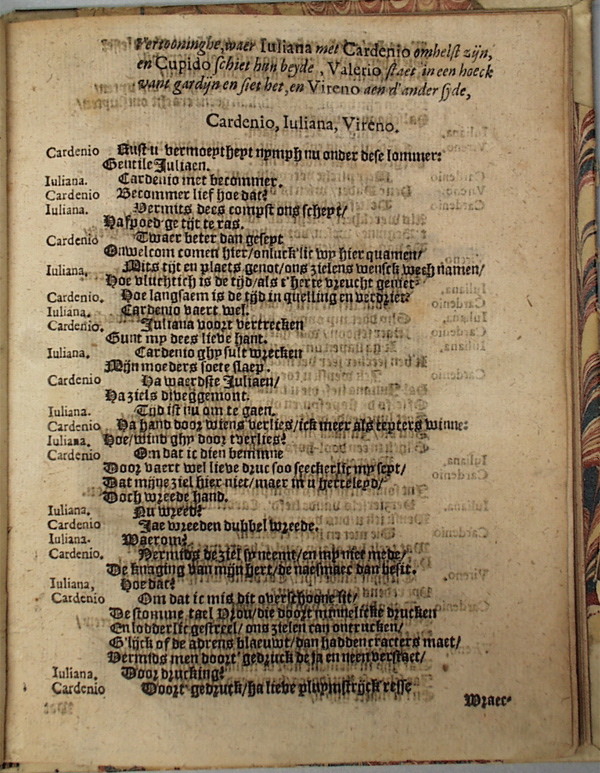 Vertooninghe, waer Iuliana met Cardenio omhelst zijn,
en Cupido schiet hun beyde, Valerio staet in een hoeck
vant gardijn en siet het, en Vireno aen d'ander syde,
Cardenio, Iuliana, Vireno.
Cardenio Rust u vermoeytheyt nymph nu onder dese lommer:
Gentile Juliaen.
Iuliana. Cardenio met becommer.
Cardenio Becommer lief hoe dat?
Iuliana. Vermits dees compst ons scheyt/
Ha spoed'ge tijt te ras.
Cardenio Twaer beter dan geseyt
Onwelcom comen hier/onluck'lic wy hier quamen/
Iuliana, Mits tijt en plaets genot/ons zielens wensch wech namen/
Hoe vluchtich is de tijd/als t'herte vreucht geniet?
Cardenio. Hoe langsaem is de tijd in quelling en verdriet?
Iuliana. Cardenio vaert wel.
Cardenio. Juliana voort vertrecken
Gunt my dees lieve hant.
Iuliana. Cardenio ghy sult wrecken
Mijn moeders soete slaep.
Cardenio Ha waerdste Juliaen/
Ha ziels
Iuliana. Tijd ist nu om te gaen.
Cardenio Ha hand door wiens verlies/ick meer als scepters winne:
Iuliana. Hoe/wind ghy door tverlies?
Cardenio Om dat ic dien beminne
Door vaert wel lieve druc soo seeckerlic my seyt/
Dat mijne ziel hier niet/maer in u herte leyd/
Doch wreede hand.
Iuliana. Nu wreed?
Cardenio Jae wreeden dubbel wreede.
Iuliana. Waerom?
Cardenio. Vermids de ziel sy neemt/en my niet mede/
De knaging van mijn hert/de naesmaec dan besit.
Iuliana, Hoe dat?
Cardenio Om dat ic mis dit overschoone lit/
De stomme tael Vrou/die doort minnelicke drucken
En lodderlic gestreel/ons zielen can ontrucken/
G'lijck of de adrens blaeuwt/dan hadden cracters maet/
Vermids men doort' gedruck de ja en neen verstaet/
Iuliana. Door drucking?
Cardenio Doort gedruck/ha lieve pluymstrijck resse
Wraec-